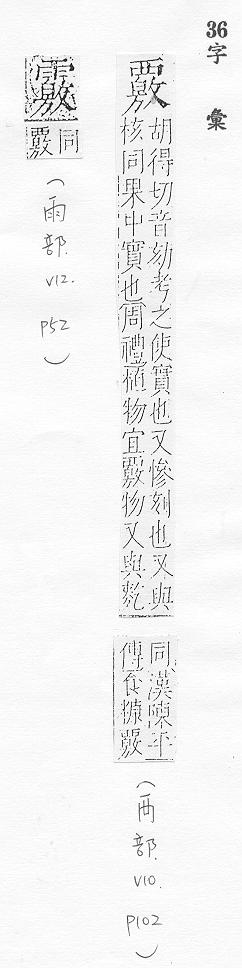 36字彙
覈
胡得切音劾考之使實也又慘刻也又與
核同果中實也周禮植物宜覈物又與麧
同漢陳平
傳食糠覈
（襾部.
V10.
P102
）
䨳
同
覈
（雨部.
V12.
P52
）